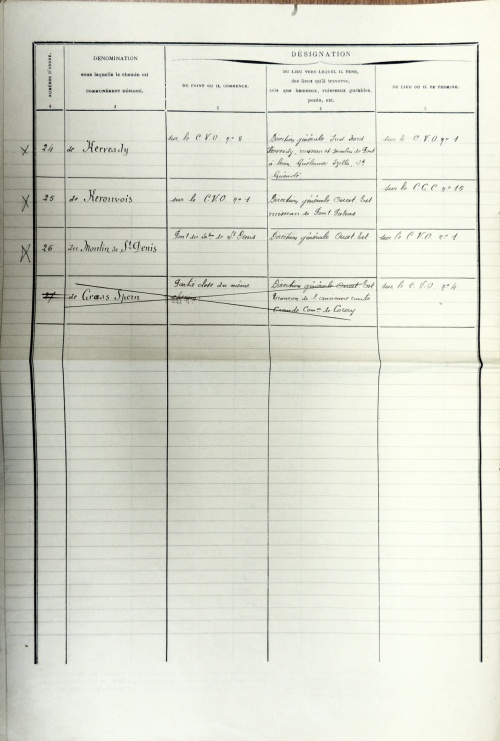 NUMÉROS D'ORDRE.
DÉNOMINATION
sous laquelle le chemin est
COMMUNÉMENT DÉSIGNÉ.
DÉSIGNATION
DU POINT OU IL COMMENCE.
DU LIEU VERS LEQUEL IL TEND,
des lieux qu'il traverse,
tels que hameaux, ruisseaux guéables,
ponts, etc.
DU LIEU OU IL SE TERMINE.
1
2
3
4
5
24
de Kerveady
sur le C.V.O. nº 8
Direction générale Sud Nord
Kerveady, ruisseau et moulin de Pont
Guillaume Izella, St
sur le C.V.O. nº 1
25
de Kerouvois
sur le C.V.O. nº 1
Direction générale Ouest Est
ruisseau de Pont
sur le C.G.C. nº 15
26
du Moulin de St Denis
Pont du Min de St Denis
Direction générale Ouest Est
sur le C.V.O. nº 1
27
de Croas Spern
Partie close du même
chemin
Direction générale Ouest Est
Grande Comon de Coray
sur le C.V.O. nº 4